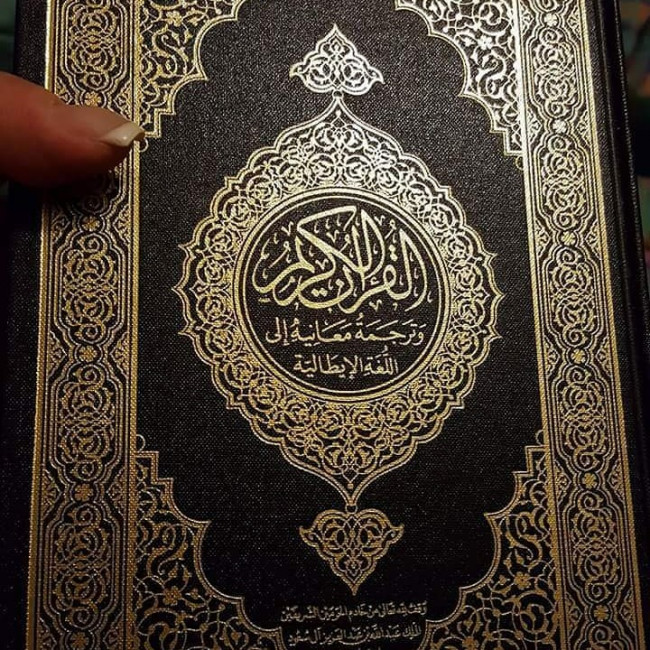 القرآن الكريم
وَتَرجَمَةُ مَعَانِيهِ إِلَى
اللُّغَةِ الإِيطَالِيَّة
وَقْفٌ لِلَّهِ تَعَالَى مِنْ خَادِمِ الحَرَمَيْنِ الشَّرِيفَيْنِ
المَلِك عَبْدِ اللَّهِ بْنِ عَبْدِ العَزِيزِ آل سُعُود